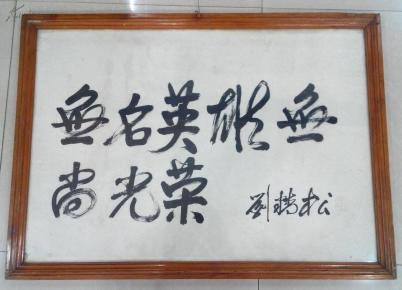 無名英雄無
尚光荣 劉精松